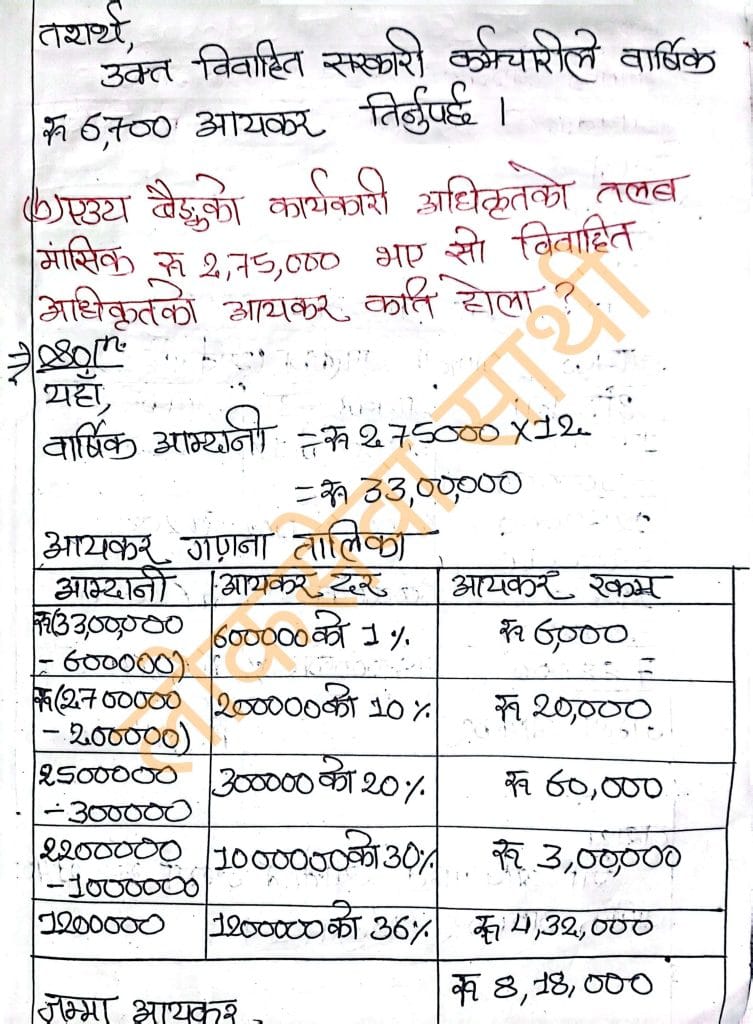 तसर्थ,
उक्त विवाहित सरकारी कर्मचारीले वार्षिक
रू 6,700 आयकर तिर्नुपर्छ ।
(b) एउटा बैङ्कको कार्यकारी अधिकृतको तलब
मासिक रू 2,75,000 भए सो विवाहित
अधिकृतको आयकर कति होला ?
⇒ Solⁿ.
यहाँ,
वार्षिक आम्दानी = रू 275000 × 12
= रू 33,00,000
आयकर गणना तालिका
आम्दानी आयकर दर आयकर रकम
रू(33,00,000 - 600000) 600000को 1% रू 6,000
रू(2700000 - 200000) 200000को 10% रू 20,000
2500000 - 300000 300000को 20% रू 60,000
2200000 - 1000000 1000000को 30% रू 3,00,000
1200000 1200000को 36% रू 4,32,000
जम्मा आयकर रू 8,18,000
लोकसेवा साथी